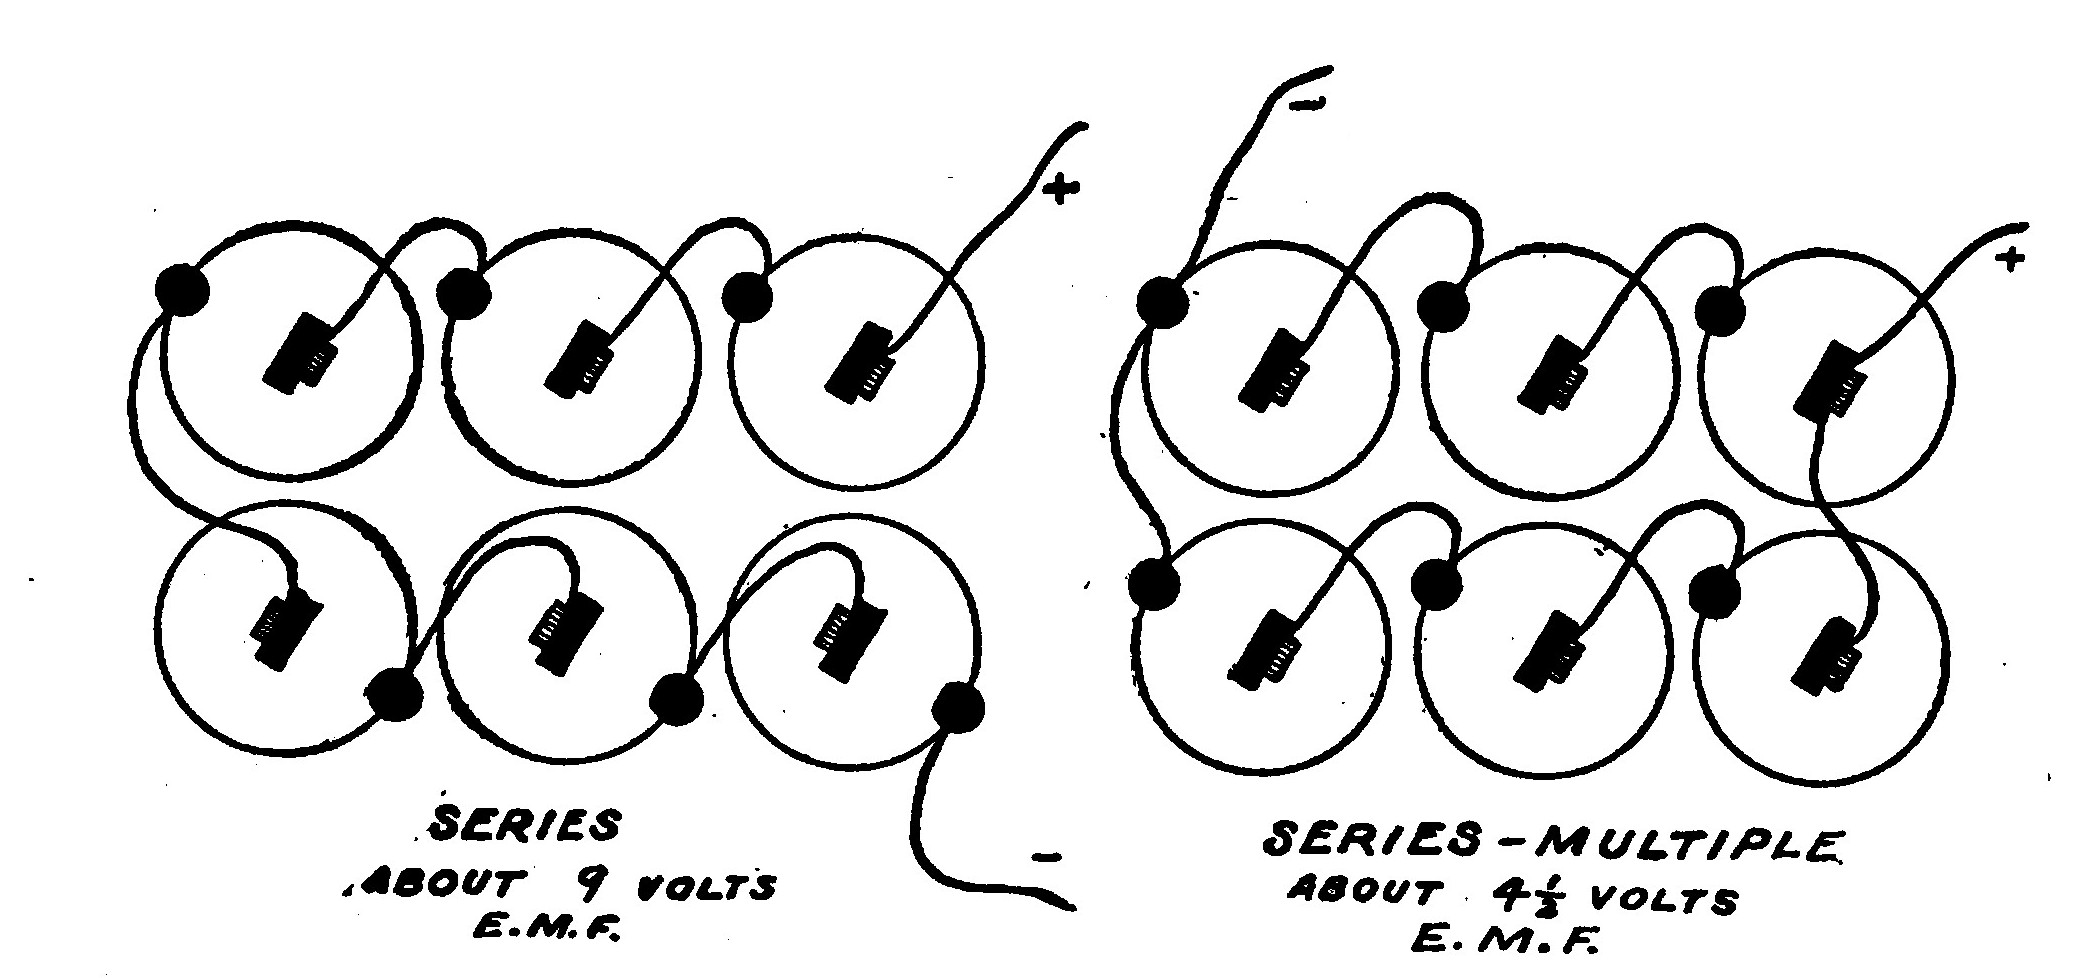 −
+
+
−
SERIES
ABOUT 9 VOLTS
E.M.F.
SERIES-MULTIPLE
ABOUT 4½ VOLTS
E.M.F.